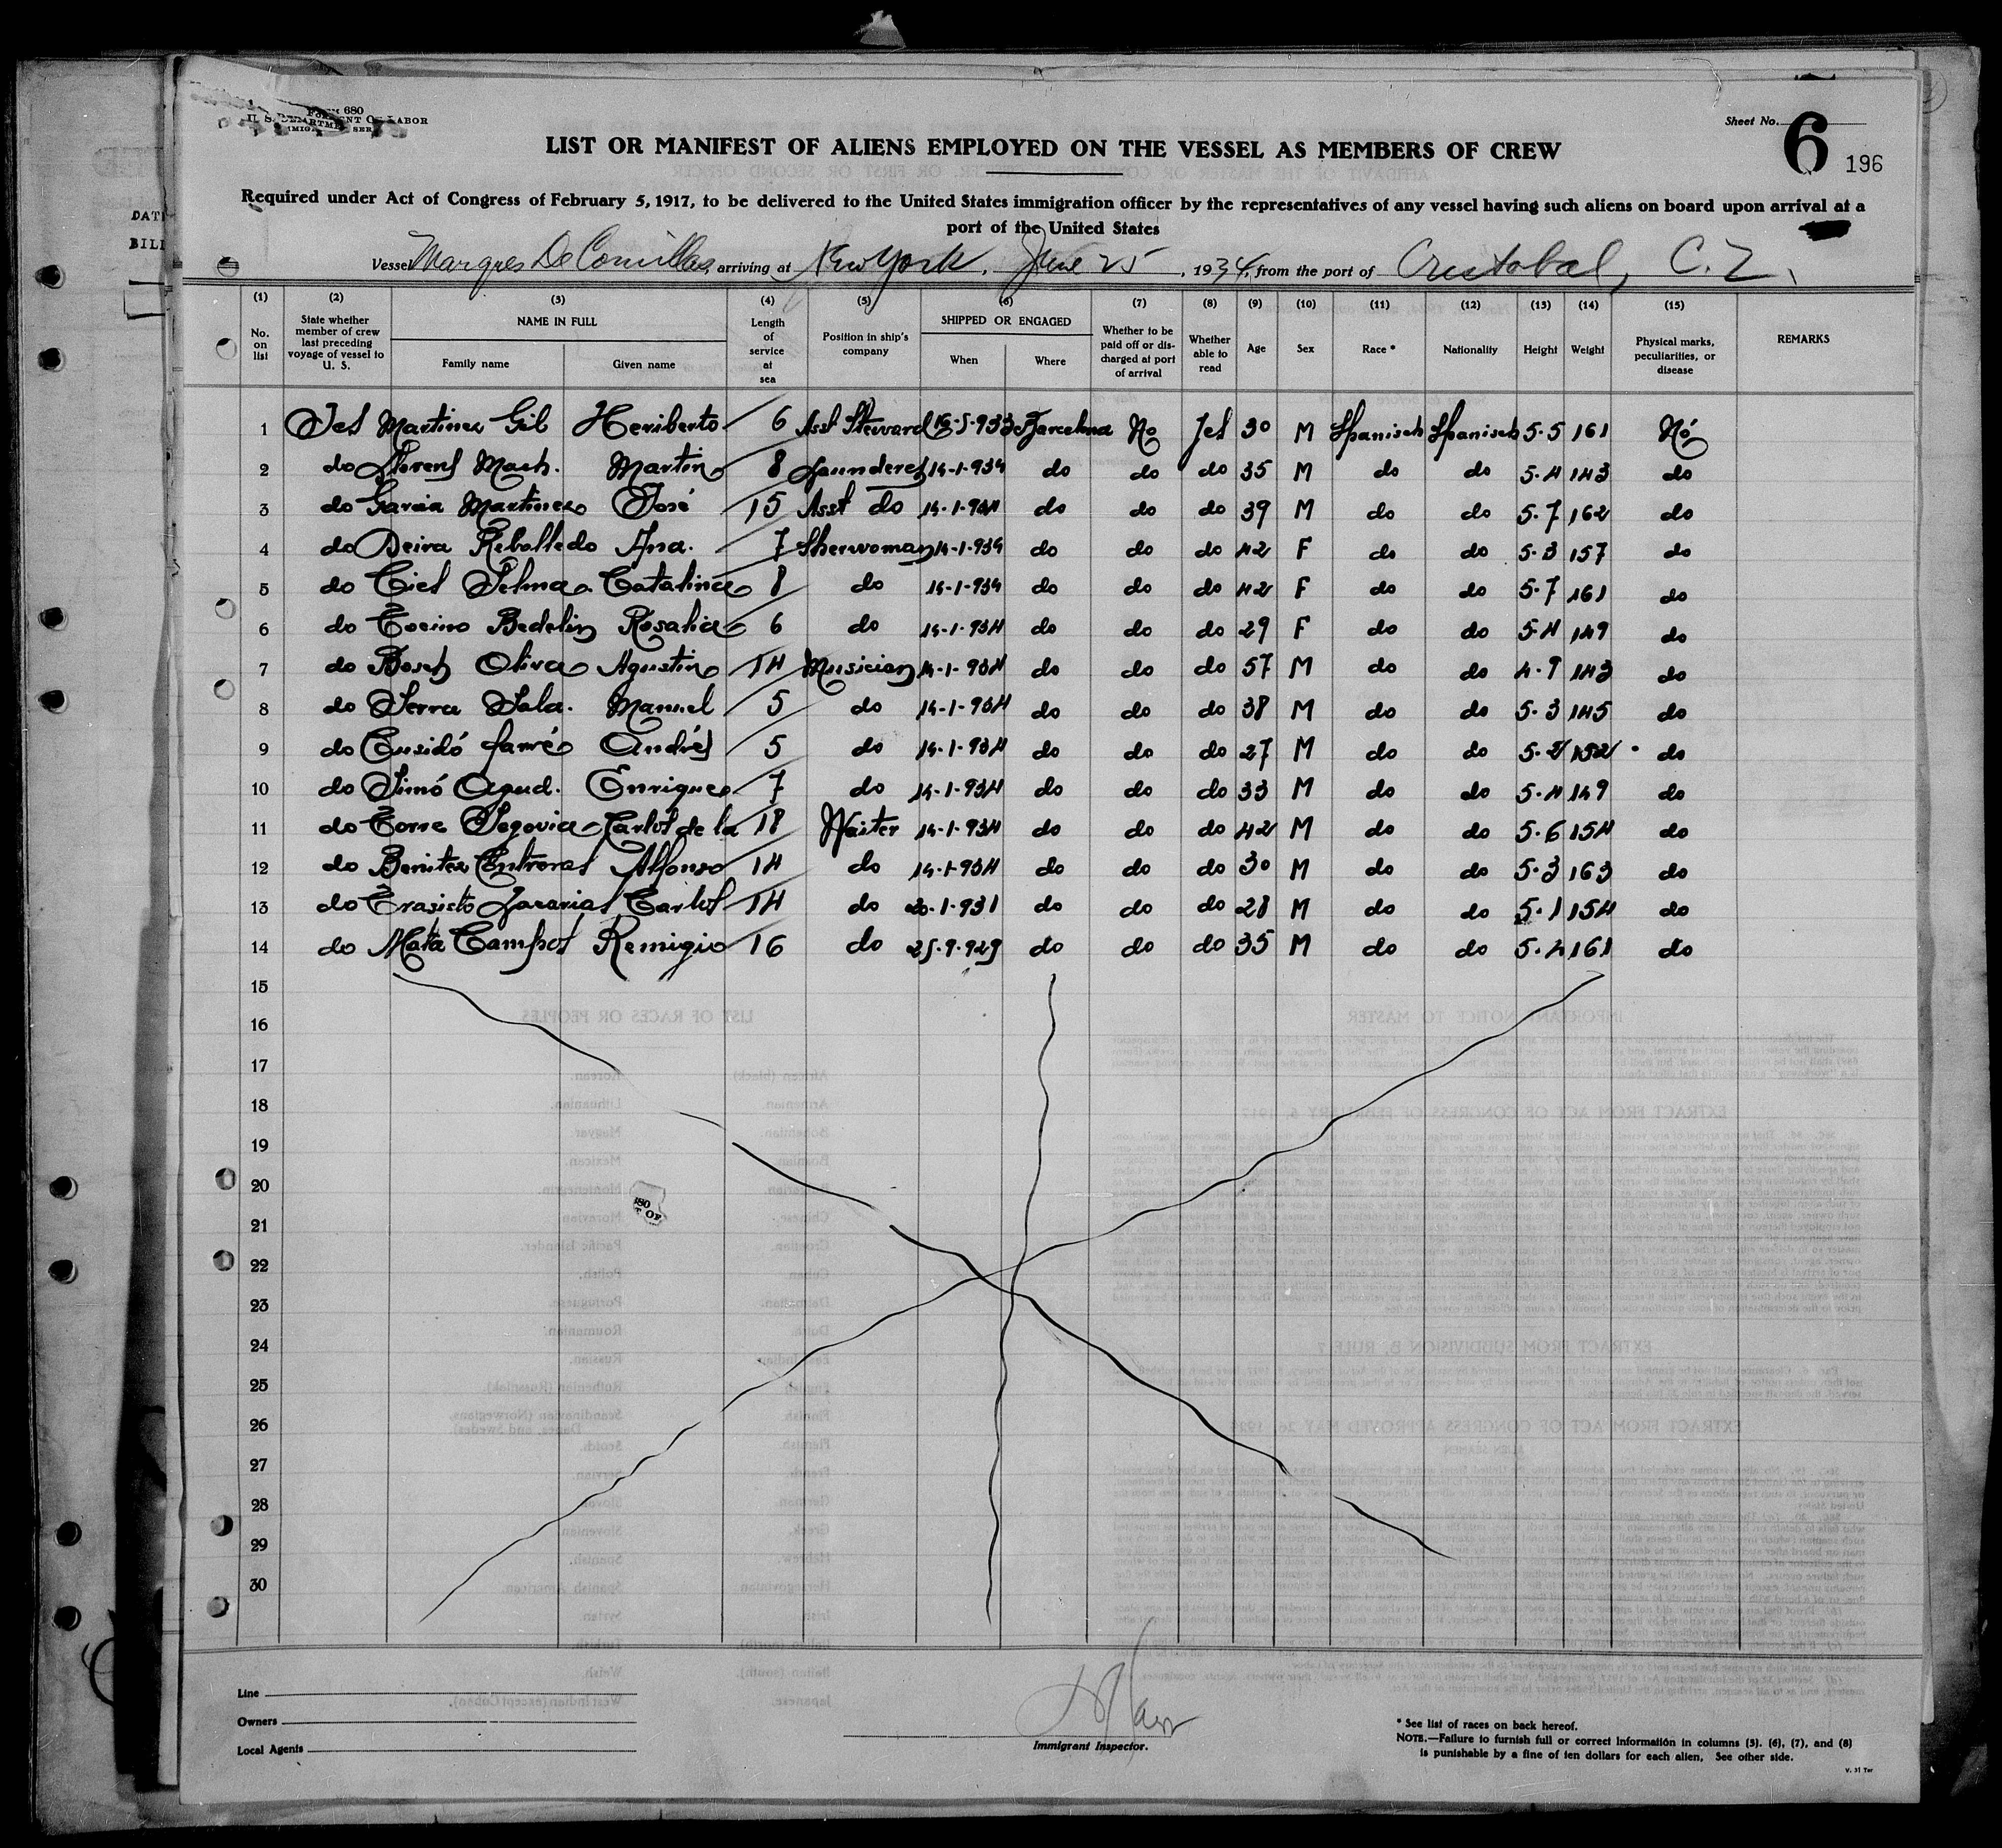 FORM 680
U. S. DEPARTMENT OF LABOR
Sheet No. 6
196
LIST OR MANIFEST OF ALIENS EMPLOYED ON THE VESSEL AS MEMBERS OF CREW
Required under Act of Congress of February 5, 1917, to be delivered to the United States immigration officer by the representatives of any vessel having such aliens on board upon arrival at a
port of the United States
Vessel Marques De Comillas, arriving at New York, June 25, 1934, from the port of Cristobal, C. Z.
(1) (2) (3) (4) (5) (6) (7) (8) (9) (10) (11) (12) (13) (14) (15)
No. on list | State whether member of crew last preceding voyage of vessel to U. S. | NAME IN FULL Family name Given name | Length of service at sea | Position in ship's company | SHIPPED OR ENGAGED When Where | Whether to be paid off or discharged at port of arrival | Whether able to read | Age | Sex | Race * | Nationality | Height | Weight | Physical marks, peculiarities, or disease | REMARKS
1 Yes Martinez Gil Heriberto 6 Asst Steward 16-5-933 Barcelona No Yes 30 M Spanisch Spanisch 5-5 161 Nó
2 do Llorens Mach. Martin 8 14-1-934 do do do 35 M do do 5-4 143 do
3 do Garcia Martinez José 15 Asst do 14-1-934 do do do 39 M do do 5-7 162 do
4 do Neira Rebolledo Ana. 7 14-1-934 do do do 42 F do do 5-3 157 do
5 do Catalina 8 do 14-1-934 do do do 42 F do do 5-7 161 do
6 do Rosalia 6 do 14-1-934 do do do 29 F do do 5-4 149 do
7 do Bosch Oliva Agustin 14 Musician 14-1-934 do do do 57 M do do 143 do
8 do Serra Sala. Manuel 5 do 14-1-934 do do do 38 M do do 5-3 145 do
9 do Cusidó Farré Andrés 5 do 14-1-934 do do do 27 M do do 5-2 152 do
10 do Simó Agud. Enrique 7 do 14-1-934 do do do 33 M do do 5-4 149 do
11 do Torre Segovia - Carlos de la 18 Waiter 14-1-934 do do do 42 M do do 5-6 154 do
12 do Benitez Contreras Alfonso 14 do 14-1-934 do do do 30 M do do 5-3 163 do
13 do Carlos 14 do 20-1-931 do do do 28 M do do 5-1 154 do
14 do Mata Campos Remigio 16 do 25-9-929 do do do 35 M do do 5-4 161 do
15
16
17
18
19
20
21
22
23
24
25
26
27
28
29
30
Line
Owners
Local Agents
Immigrant Inspector.
* See list of races on back hereof.
NOTE.—Failure to furnish full or correct information in columns (3), (6), (7), and (8)
is punishable by a fine of ten dollars for each alien. See other side.